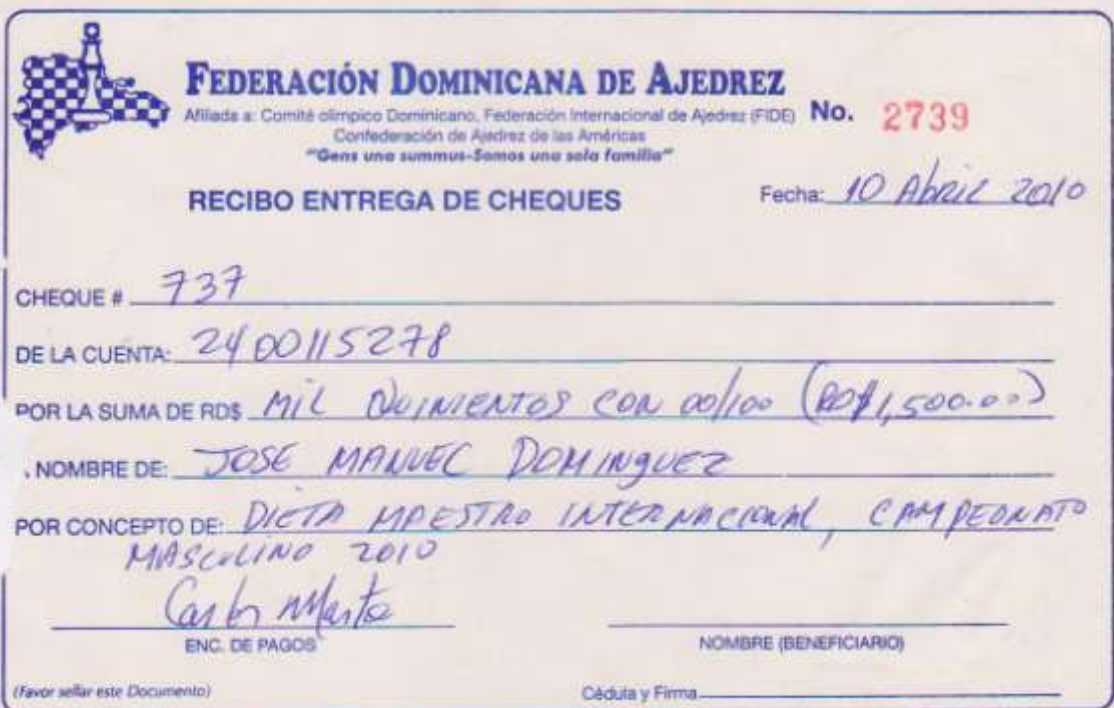 FEDERACIÓN DOMINICANA DE AJEDREZ
Afiliada a: Comité olímpico Dominicano, Federación Internacional de Ajedrez (FIDE) No. 2739
Confederación de Ajedrez de las Américas
"Gens una summus-Somos una sola familia"
RECIBO ENTREGA DE CHEQUES
Fecha: 10 Abril 2010
CHEQUE # 737
DE LA CUENTA: 2400115278
POR LA SUMA DE RD$ MIL QUINIENTOS CON 00/100 (RD$1,500.00)
NOMBRE DE: JOSE MANUEL DOMINGUEZ
POR CONCEPTO DE: DIETA MAESTRO INTERNACIONAL, CAMPEONATO
MASCULINO 2010
Carlos Marte
ENC. DE PAGOS
NOMBRE (BENEFICIARIO)
(Favor sellar este Documento)
Cédula y Firma